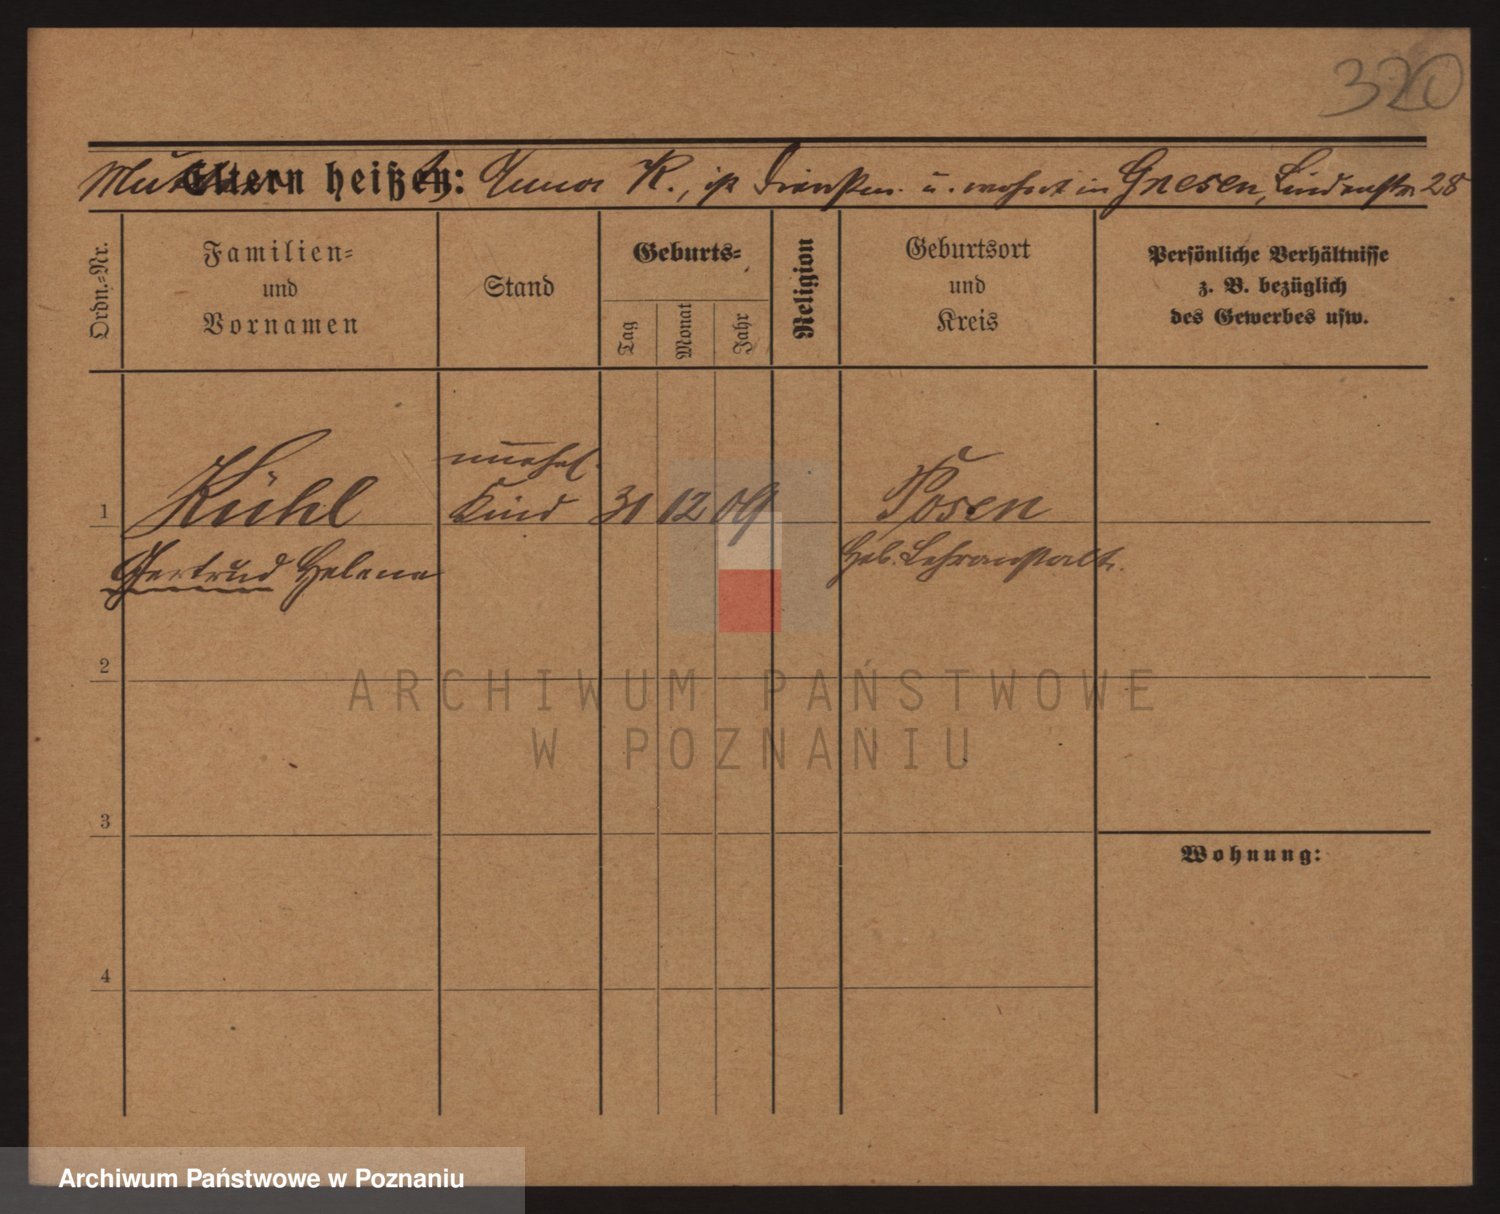 320
Mutter heißt: Anna K., ist Dienstm. u. wohnt in Gnesen, Lindenstr. 28
Ordn.-Nr.
Familien-
und
Vornamen
Stand
Geburts-
Tag
Monat
Jahr
Religion
Geburtsort
und
Kreis
Persönliche Verhältnisse
z. B. bezüglich
des Gewerbes usw.
unehel.
1 Kühl Kind 31 12 09 Posen
Gertrud Helene Heb. Lehranstalt.
2
ARCHIWUM PAŃSTWOWE
W POZNANIU
3
Wohnung:
4
Archiwum Państwowe w Poznaniu